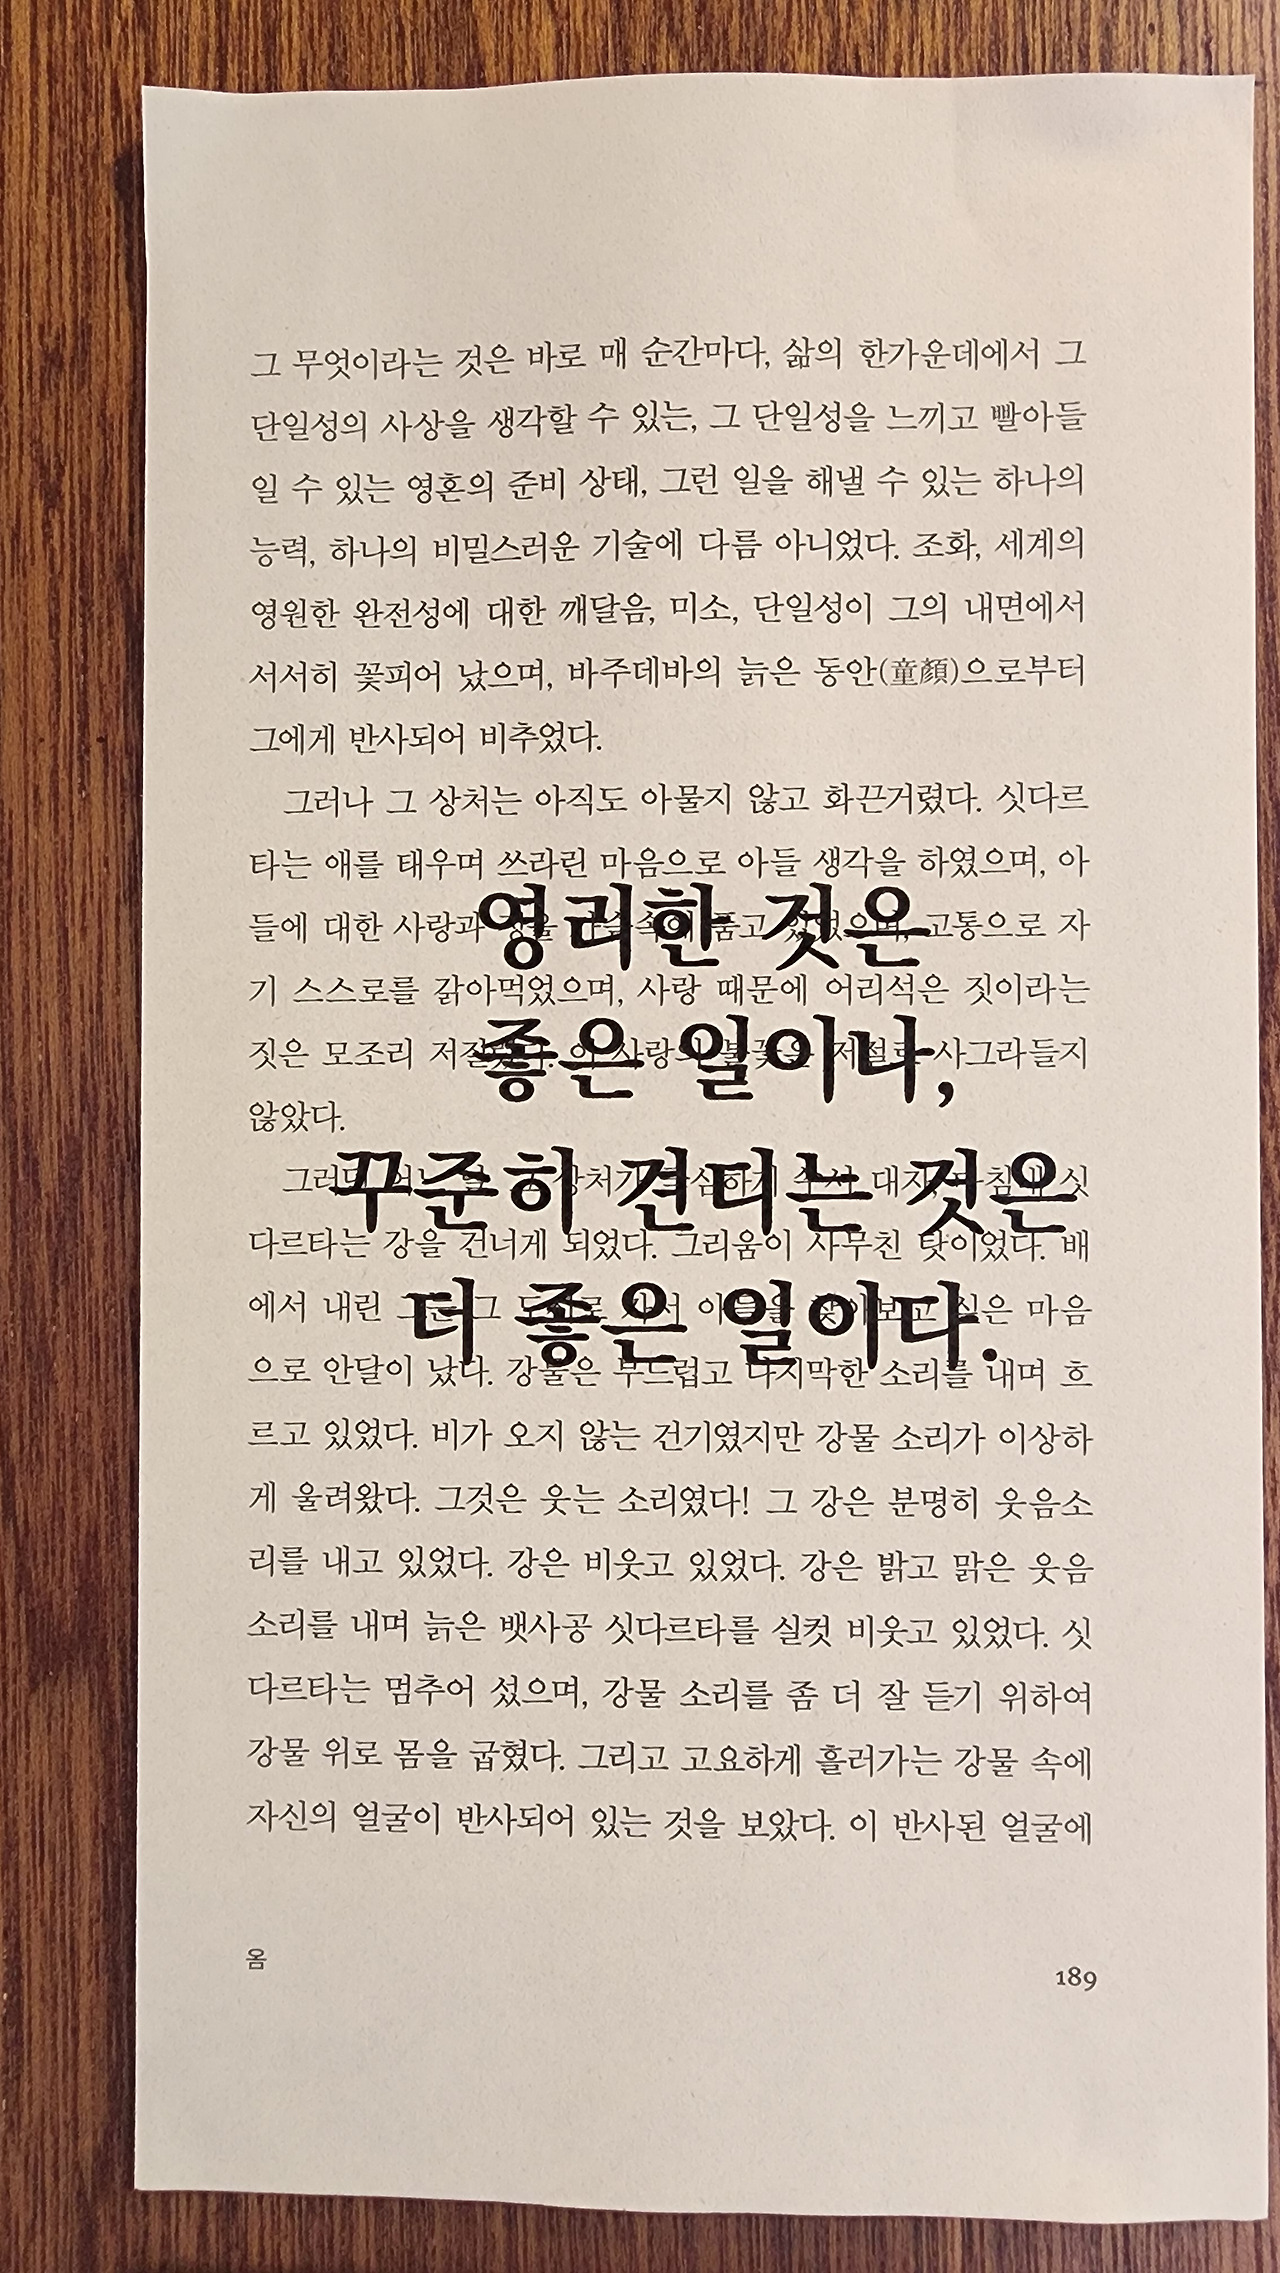 그 무엇이라는 것은 바로 매 순간마다, 삶의 한가운데에서 그
단일성의 사상을 생각할 수 있는, 그 단일성을 느끼고 빨아들
일 수 있는 영혼의 준비 상태, 그런 일을 해낼 수 있는 하나의
능력, 하나의 비밀스러운 기술에 다름 아니었다. 조화, 세계의
영원한 완전성에 대한 깨달음, 미소, 단일성이 그의 내면에서
서서히 꽃피어 났으며, 바주데바의 늙은 동안(童顔)으로부터
그에게 반사되어 비추었다.
그러나 그 상처는 아직도 아물지 않고 화끈거렸다. 싯다르
타는 애를 태우며 쓰라린 마음으로 아들 생각을 하였으며, 아
들에 대한 사랑과 품고 고통으로 자
영리한 것은
기 스스로를 갉아먹었으며, 사랑 때문에 어리석은 짓이라는
짓은 모조리 사그라들지
좋은 일이나,
않았다.
꾸준히 견디는 것은
다르타는 강을 건너게 되었다. 그리움이 사무친 탓이었다. 배
에서 내린 그 싶은 마음
더 좋은 일이다.
으로 안달이 났다. 강물은 부드럽고 나지막한 소리를 내며 흐
르고 있었다. 비가 오지 않는 건기였지만 강물 소리가 이상하
게 울려왔다. 그것은 웃는 소리였다! 그 강은 분명히 웃음소
리를 내고 있었다. 강은 비웃고 있었다. 강은 밝고 맑은 웃음
소리를 내며 늙은 뱃사공 싯다르타를 실컷 비웃고 있었다. 싯
다르타는 멈추어 섰으며, 강물 소리를 좀 더 잘 듣기 위하여
강물 위로 몸을 굽혔다. 그리고 고요하게 흘러가는 강물 속에
자신의 얼굴이 반사되어 있는 것을 보았다. 이 반사된 얼굴에
옴
189